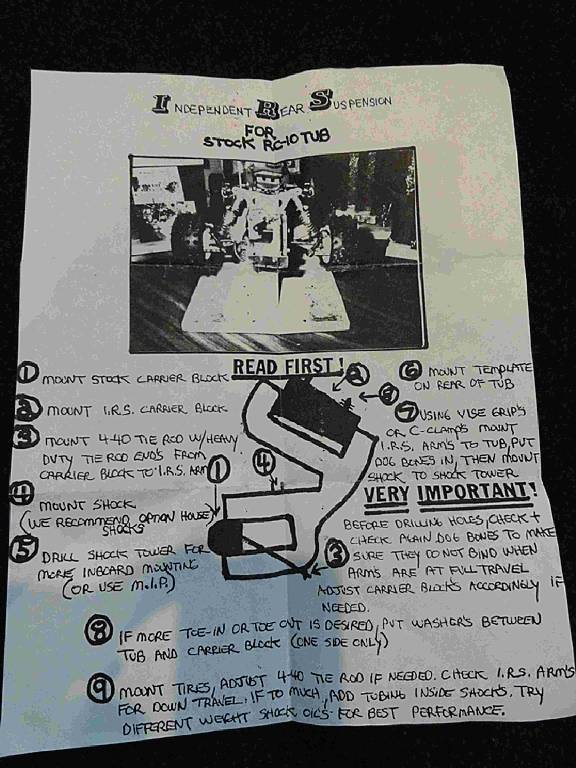 INDEPENDENT REAR SUSPENSION
FOR
STOCK RC-10 TUB
READ FIRST!
① MOUNT STOCK CARRIER BLOCK
② MOUNT I.R.S. CARRIER BLOCK
③ MOUNT 4-40 TIE ROD W/HEAVY
DUTY TIE ROD END'S FROM
CARRIER BLOCK TO I.R.S. ARM
④ MOUNT SHOCK
(WE RECOMMEND OPTION HOUSE)
SHOCKS
⑤ DRILL SHOCK TOWER FOR
MORE INBOARD MOUNTING
(OR USE M.I.P.)
①
④
③
⑥ MOUNT TEMPLATE
ON REAR OF TUB
⑦ USING VISE GRIP'S
OR C-CLAMPS MOUNT
I.R.S. ARM'S TO TUB, PUT
DOG BONES IN, THEN MOUNT
SHOCK TO SHOCK TOWER
VERY IMPORTANT!
BEFORE DRILLING HOLES, CHECK +
CHECK AGAIN DOG BONES TO MAKE
SURE THEY DO NOT BIND WHEN
ARM'S ARE AT FULL TRAVEL
ADJUST CARRIER BLOCKS ACCORDINGLY IF
NEEDED.
⑧ IF MORE TOE-IN OR TOE OUT IS DESIRED, PUT WASHER'S BETWEEN
TUB AND CARRIER BLOCK (ONE SIDE ONLY)
⑨ MOUNT TIRES, ADJUST 4-40 TIE ROD IF NEEDED. CHECK I.R.S. ARM'S
FOR DOWN TRAVEL. IF TO MUCH, ADD TUBING INSIDE SHOCKS. TRY
DIFFERENT WEIGHT SHOCK OILS FOR BEST PERFORMANCE.